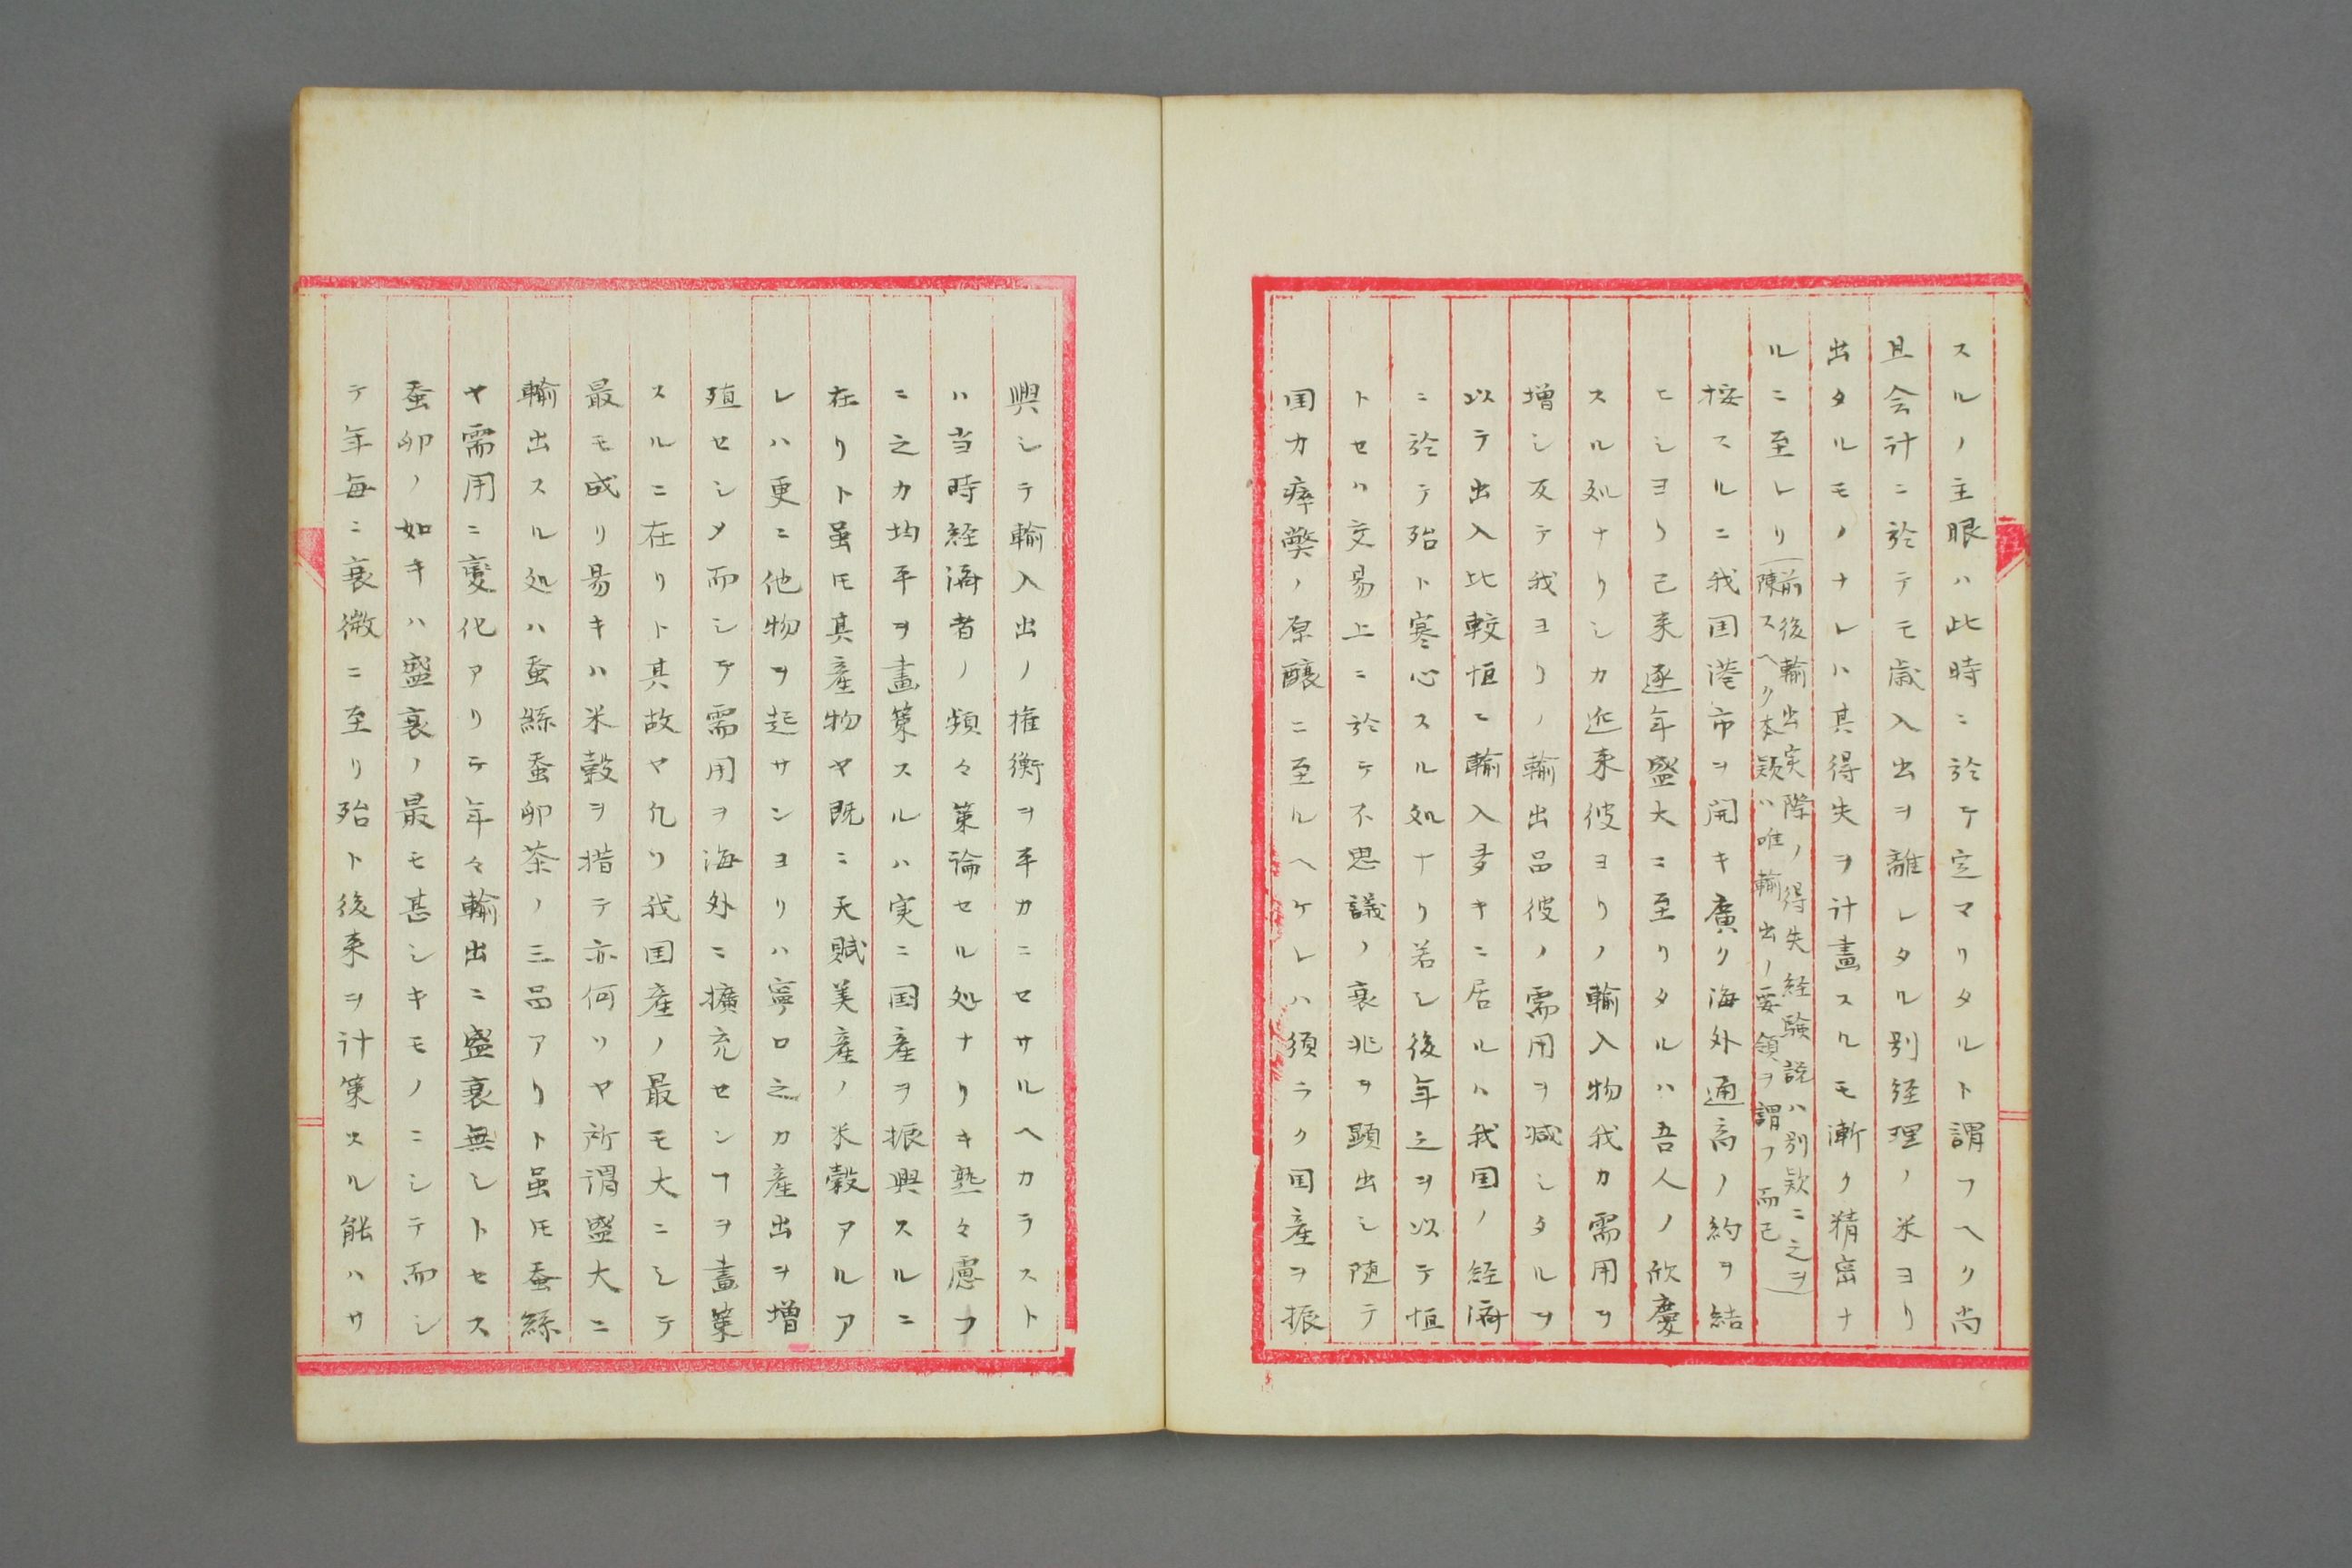 スルノ主眼ハ此時ニ於テ定マリタルト謂フヘク尚
且会計ニ於テモ歳入出ヲ離レタル別経理ノ米ヨリ
出タルモノナレハ其得失ヲ計畫スルモ漸ク精密ナ
ルニ至レリ(前後輸出実際ノ得失経験説ハ別欵ニ之ヲ
陳スヘク本欵ハ唯輸出ノ要領ヲ謂フ而已)
按スルニ我国港市ヲ開キ廣ク海外通商ノ約ヲ結
ヒシヨリ己来逐年盛大ニ至リタルハ吾人ノ欣慶
スル処ナリシカ近来彼ヨリノ輸入物我カ需用ヲ
増シ反テ我ヨリノ輸出品彼ノ需用ヲ減シタルヲ
以テ出入比較恒ニ輸入多キニ居ルハ我国ノ経済
ニ於テ殆ト寒心スル処ナリ若シ後年之ヲ以テ恒
トセハ交易上ニ於テ不思議ノ衰兆ヲ顕出シ随テ
国力瘁獘ノ原醸ニ至ルヘケレハ須ラク国産ヲ振
興シテ輸入出ノ権衡ヲ平カニセサルヘカラスト
ハ当時経済者ノ頻々策論セル処ナリキ熟々慮フ
ニ之カ均平ヲ畫策スルハ実ニ国産ヲ振興スルニ
在リト虽𪜈其産物ヤ既ニ天賦美産ノ米穀アルア
レハ更ニ他物ヲ起サンヨリハ寧ロ之カ産出ヲ増
殖セシメ而シテ需用ヲ海外ニ擴充センヿヲ畫策
スルニ在リト其故ヤ凡ソ我国産ノ最モ大ニシテ
最モ成リ易キハ米穀ヲ措テ亦何ソヤ所謂盛大ニ
輸出スル処ハ蚕絲蚕卵茶ノ三品アリト虽𪜈蚕絲
ヤ需用ニ変化アリテ年々輸出ニ盛衰無シトセス
蚕卵ノ如キハ盛衰ノ最モ甚シキモノニシテ而シ
テ年毎ニ衰微ニ至リ殆ト後来ヲ計策スル能ハサ